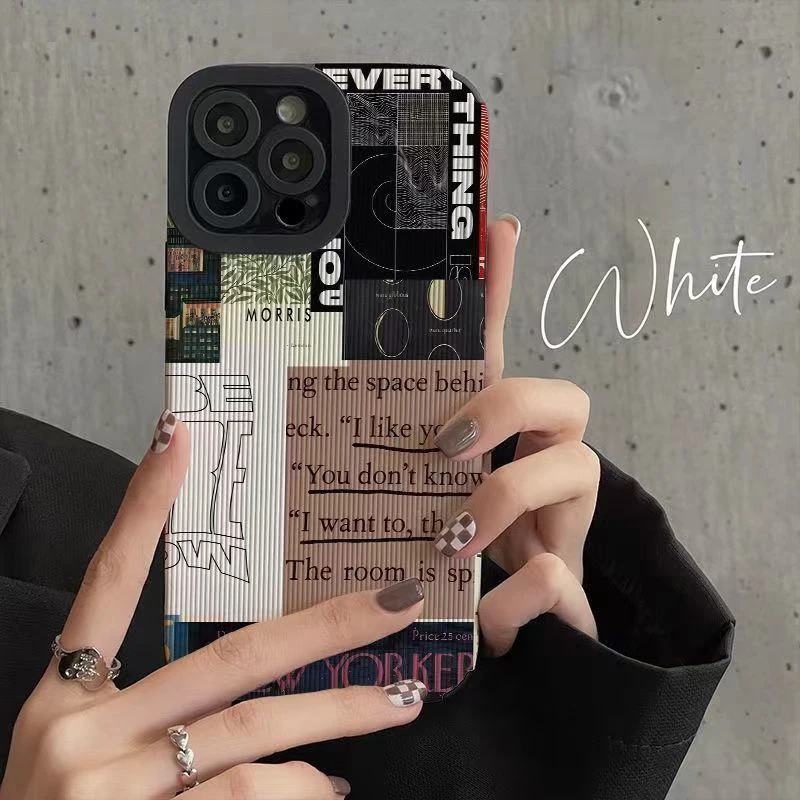 EVERY
THING
IS
YOU
MORRIS
White
BE
ng the space behi
eck. “I like yo
“You don’t know
“I want to, th
The room is sp
Price 25 cen
EW YORKER